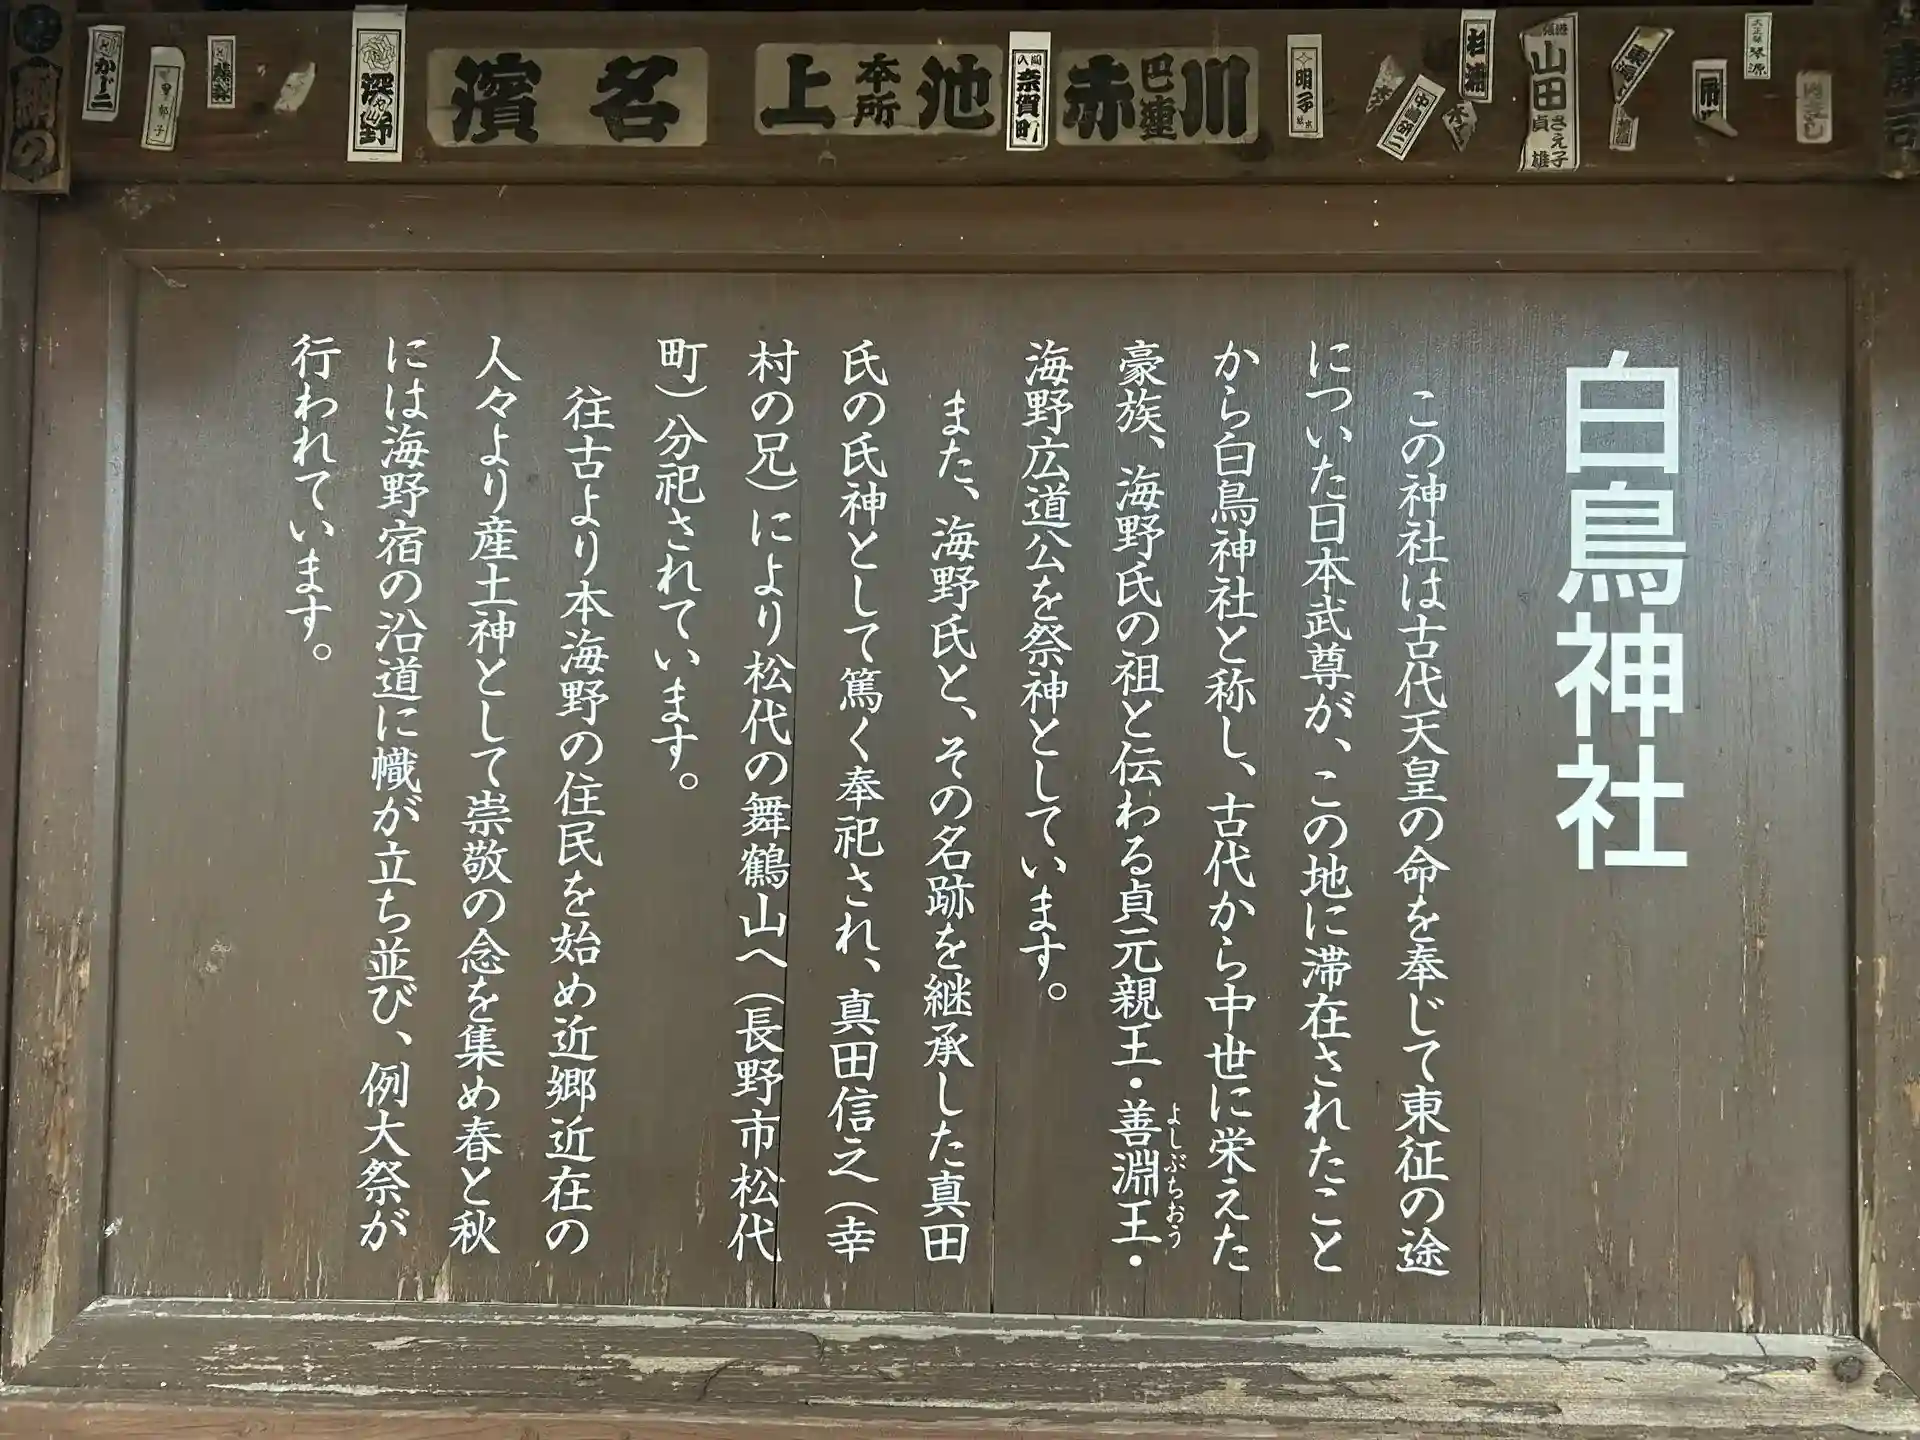 白鳥神社
この神社は古代天皇の命を奉じて東征の途
についた日本武尊が、この地に滞在されたこと
から白鳥神社と称し、古代から中世に栄えた
豪族、海野氏の祖と伝わる貞元親王・善淵王・
よしぶちおう
海野広道公を祭神としています。
また、海野氏と、その名跡を継承した真田
氏の氏神として篤く奉祀され、真田信之（幸
村の兄）により松代の舞鶴山へ（長野市松代
町）分祀されています。
往古より本海野の住民を始め近郷近在の
人々より産土神として崇敬の念を集め春と秋
には海野宿の沿道に幟が立ち並び、例大祭が
行われています。
深野
濱名
上本所池
奈賀町
赤巴連川
明子
杉浦
山田
さえ子
貞雄
琴源